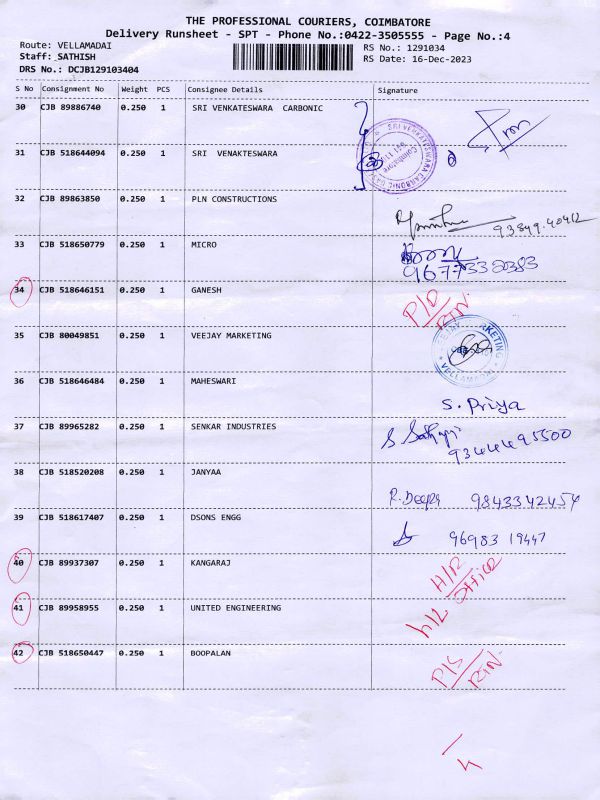 THE PROFESSIONAL COURIERS, COIMBATORE
Delivery Runsheet - SPT - Phone No.:0422-3505555 - Page No.:4
Route: VELLAMADAI RS No.: 1291034
Staff: SATHISH RS Date: 16-Dec-2023
DRS No.: DCJB129103404
S No Consignment No Weight PCS Consignee Details Signature
30 CJB 89886740 0.250 1 SRI VENKATESWARA CARBONIC
31 CJB 518644094 0.250 1 SRI VENAKTESWARA
SRI VENKATESWARA CARBONIC
Coimbatore
32 CJB 89863850 0.250 1 PLN CONSTRUCTIONS
93849.40412
33 CJB 518650779 0.250 1 MICRO
34 CJB 518646151 0.250 1 GANESH P/D
RTN
35 CJB 80049851 0.250 1 VEEJAY MARKETING
VEEJAY MARKETING
VELLAMADAI
36 CJB 518646484 0.250 1 MAHESWARI
S. Priya
37 CJB 89965282 0.250 1 SENKAR INDUSTRIES
38 CJB 518520208 0.250 1 JANYAA
R. Deepa 9843342454
39 CJB 518617407 0.250 1 DSONS ENGG
96983 19447
40 CJB 89937307 0.250 1 KANGARAJ H/R
OFFICE
41 CJB 89958955 0.250 1 UNITED ENGINEERING H/L
42 CJB 518650447 0.250 1 BOOPALAN P/S
RTN